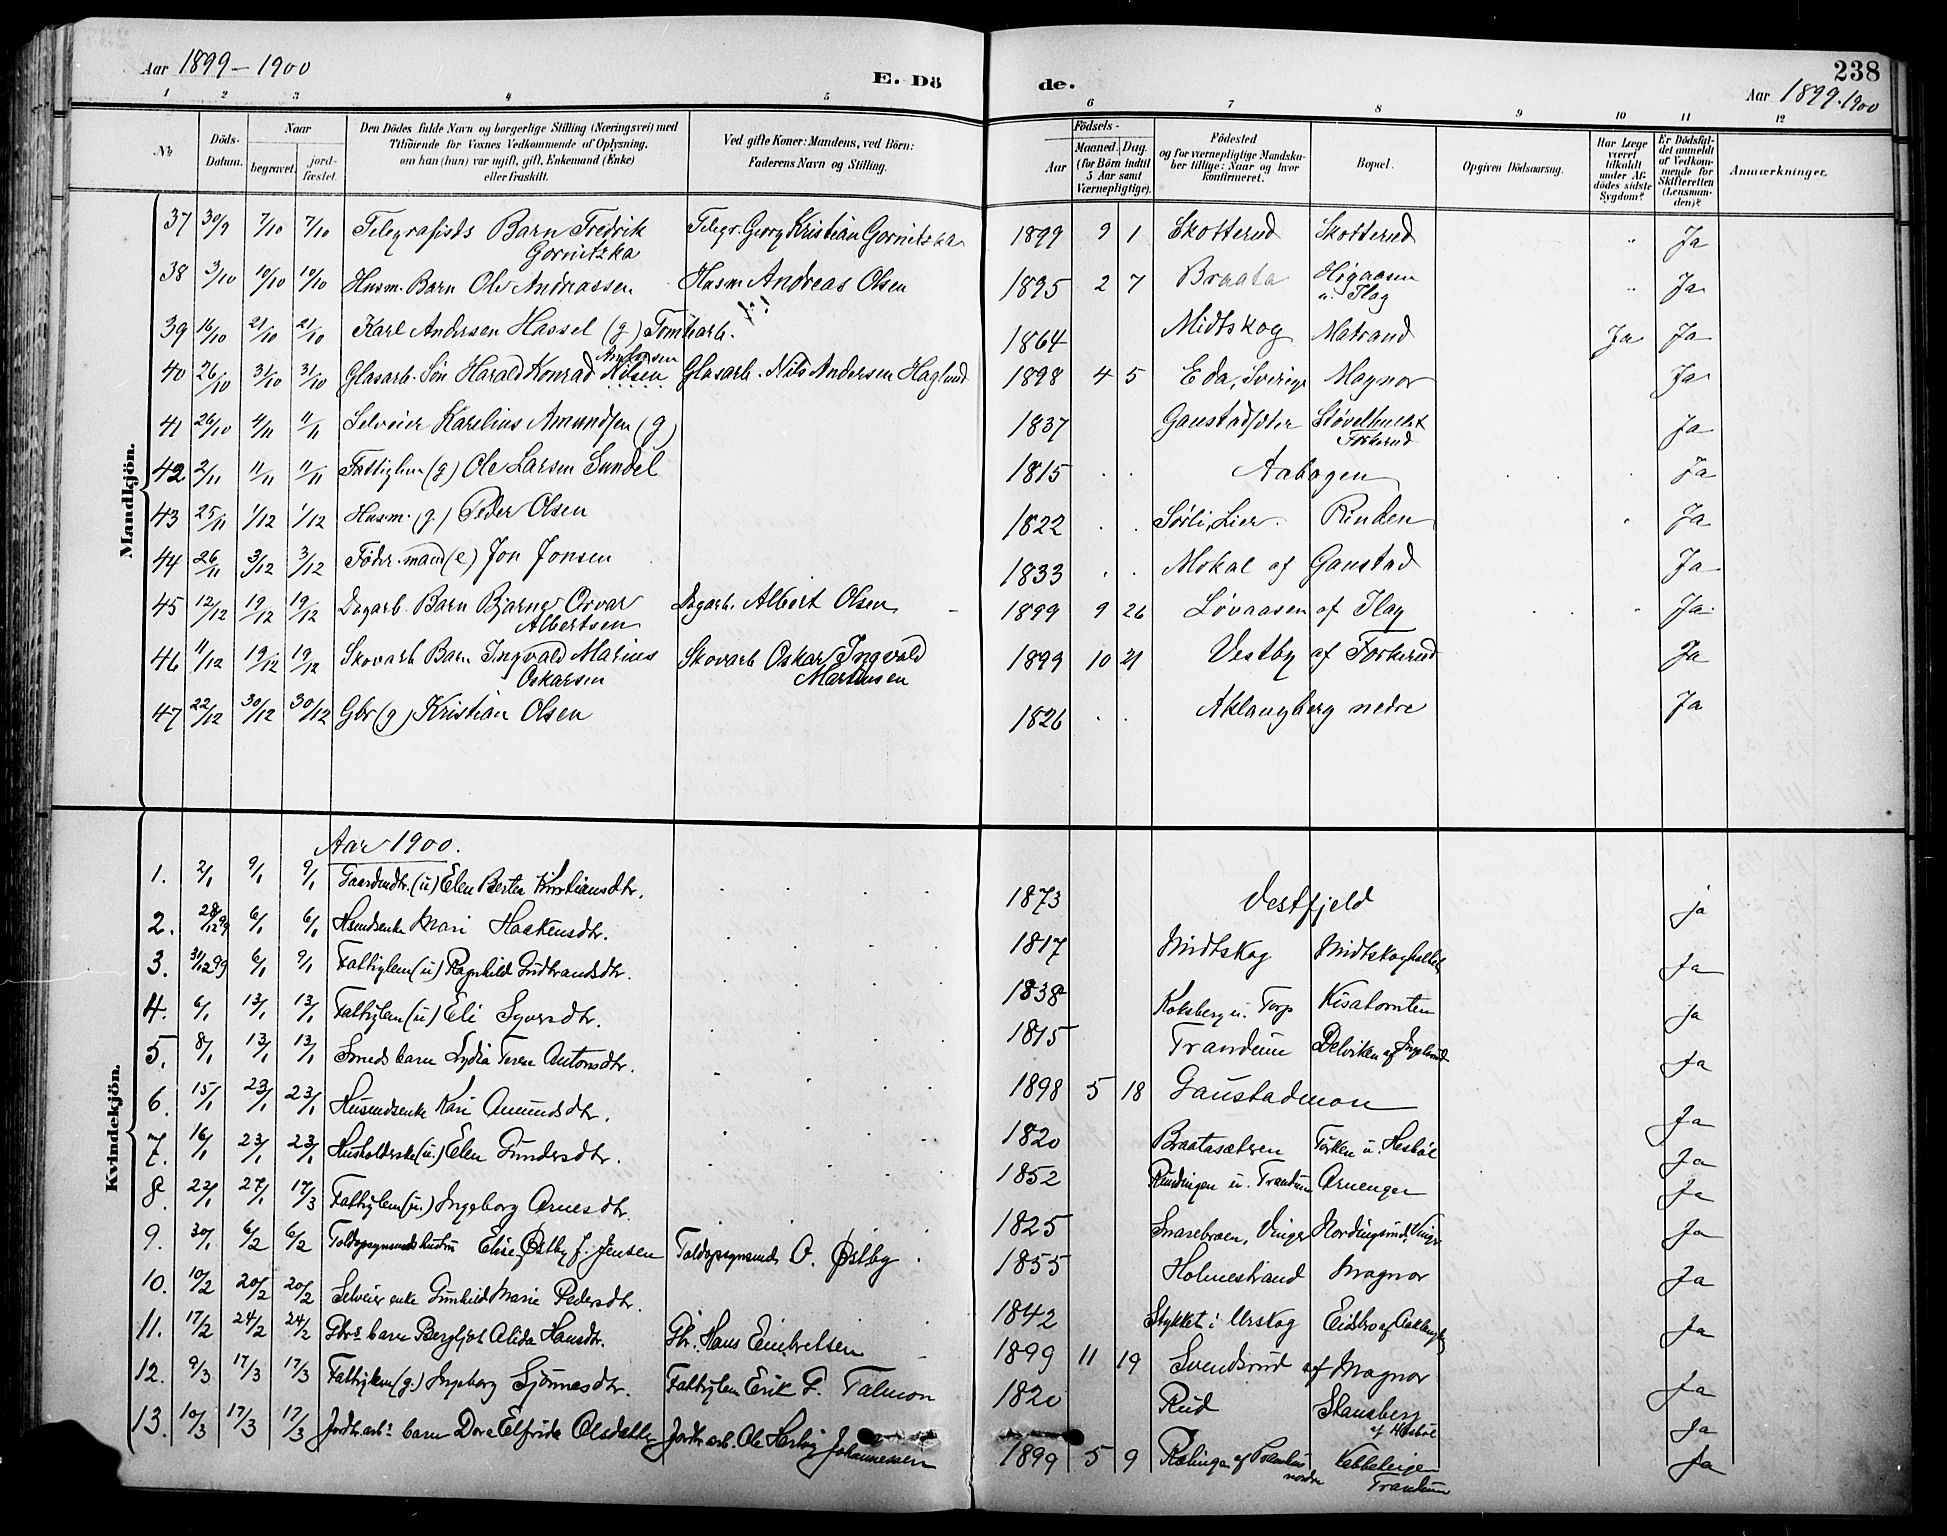 Aar 1899-1900 E. Dö
de. 238
Aar 1899-1900
1 2 3 4 5 6 7 8 9 10 11 12
No
Döds-Datum.
Naar
begravet.
jord-fæstet.
Den Dödes fulde Navn og borgerlige Stilling (Næringsvei) med
Tilföiende for Voxnes Vedkommende af Oplysning,
om han (hun) var ugift, gift, Enkemand (Enke)
eller fraskilt.
Ved gifte Koner: Mandens, ved Börn:
Faderens Navn og Stilling.
Födsels-
Aar
Maaned. Dag.
(for Börn indtil
5 Aar samt
Værnepligtige).
Födested
og for værnepligtige Mandska-
ber tillige: Naar og hvor
konfirmeret.
Bopæl.
Opgiven Dödsaarsag.
Har Læge
været
tilkaldt
under Af-
dödes sidste
Sygdom?
Er Dödsfal-
det anmeldt
af Vedkom-
mende for
Skifteretten
(Lensman-
den)?
Anmærkninger.
Mandkjön.
37 30/9 7/10 7/10 Telegrafists Barn Fredrik Gornitzka Telegr. Georg Kristian Gornitzka 1899 9 1 Skotterud Skotterud " Ja
38 3/10 10/10 10/10 Husm. Barn Ole Andreassen Husm Andreas Olsen 1895 2 7 Braata Högaasen u. Flag " Ja
39 16/10 21/10 21/10 Karl Andersen Hassel (g) Tomtearb. 1864 Midtskog Matrand Ja Ja
40 26/10 31/10 31/10 Glasarb. Sön Harald Konrad Nilsen Andersen Glasarb. Nils Andersen Haglund 1898 4 5 Eda, Sverige Magnor Ja
41 26/10 4/11 11/11 Selveier Karelius Amundsen (g) 1837 Gaustadsæter Støvelhultet Forkerud Ja
42 2/11 11/11 11/11 Fattiglem (g) Ole Larsen Sundel 1815 Aabogen Ja
43 25/11 1/12 1/12 Husm. (g) Peder Olsen 1822 Sørli, Lier Rinden Ja
44 26/11 3/12 3/12 Föder.mand (e) Jon Jonsen 1833 Mokal af Gaustad Ja
45 12/12 19/12 19/12 Dagarb. Barn Bjarne Orvar Albertsen Dagarb. Albert Olsen 1899 9 26 Løvaasen af Flag Ja
46 11/12 19/12 19/12 Skovarb Barn Ingvald Marius Oskarsen Skovarb Oskar Ingvald Martinsen 1899 10 21 Vestby af Forkerud Ja
47 22/12 30/12 30/12 Gbr (g) Kristian Olsen 1826 Aklangberg nedre Ja
Kvindekjön.
Aar 1900.
1. 2/1 9/1 9/1 Gaardmdtr. (u) Elen Berte Kristiansdtr. 1873 Vestfjeld ja
2. 28/12 99 6/1 6/1 Husmdsenke Mari Haakensdtr. 1817 Midtskog Ja
3. 31/12 99 6/1 9/1 Fattiglem (u) Ragnhild Gudbrandsdtr. 1838 Koksberg u. Torp Kisatomten ja
4. 6/1 13/1 13/1 Fattiglem (u) Eli Syversdtr. 1815 Trandum Delviken af Ja
5. 8/1 13/1 13/1 Smeds barn Lydia Antonsdtr. 1898 5 18 Gaustadmon Ja
6. 15/1 23/1 23/1 Husmdsenke Kari Amundsdtr. 1820 Braatasætren u. Hesböl Ja
7. 16/1 23/1 23/1 Husholderske (u.) Elen Gundersdtr. 1852 u. Trandum Arnenger Ja
8. 22/1 27/1 17/3 Fattiglem (u.) Ingeborg Arnesdtr. 1825 Vinger Vinger Ja
9. 30/1 6/2 6/2 Toldopsynsmdshustru Elise Østby f. Jensen Toldopsynsmd. O. Østby 1855 Holmestrand Magnor Ja
10. 10/2 20/2 20/2 Selveier enke Gunhild Marie Pedersdtr. 1842 Stykket i Urskog Eidsbro af Ja
11. 17/2 24/2 24/2 Gbrs barn Bergljot Alida Hansdtr. Gbr. Hans Eimbretsen 1899 11 19 Svendsrud af Magnor Ja
12. 9/3 17/3 17/3 Fattiglem (g.) Ingeborg Fattiglem Erik G. Talmon 1820 Rud Stansberg af Hesböl Ja
13. 10/3 17/3 17/3 barn Dora Elfride Olsdatter Ole Johannessen 1899 5 9 nordre Trandum Ja